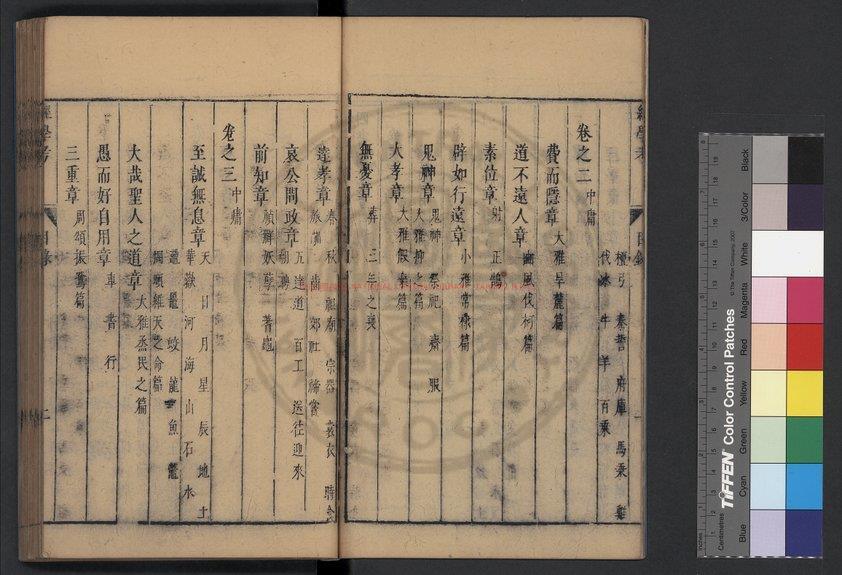 檀弓 秦誓 府庫 馬乘 雞
伐冰 牛羊 百乘
卷之二 中庸
費而隱章 大雅旱麓篇
道不遠人章 豳風伐柯篇
素位章 射 正鵠
辟如行遠章 小雅常棣篇
鬼神章 鬼神 祭祀 齋 服
大雅抑之篇
大孝章 大雅假樂篇
無憂章 葬 三年之喪
達孝章 春秋 祖廟 宗器 裳衣 時食
郊社 禘嘗
哀公問政章 五達道 百工 送往迎來
前知章 禎祥 妖孽 蓍龜
卷之三 中庸
至誠無息章 天 日 月 星 辰 地 土
華嶽 河 海 山 石 水
黿 鼉 蛟 龍 魚 鼈
周頌維天之命篇
大哉聖人之道章 大雅烝民之篇
愚而好自用章 車 書 行
三重章 周頌振鷺篇
目錄
二
TIFFEN Color Control Patches
© The Tiffen Company, 2007
Inches
Centimetres
Blue
Cyan
Green
Yellow
Red
Magenta
White
3/Color
Black